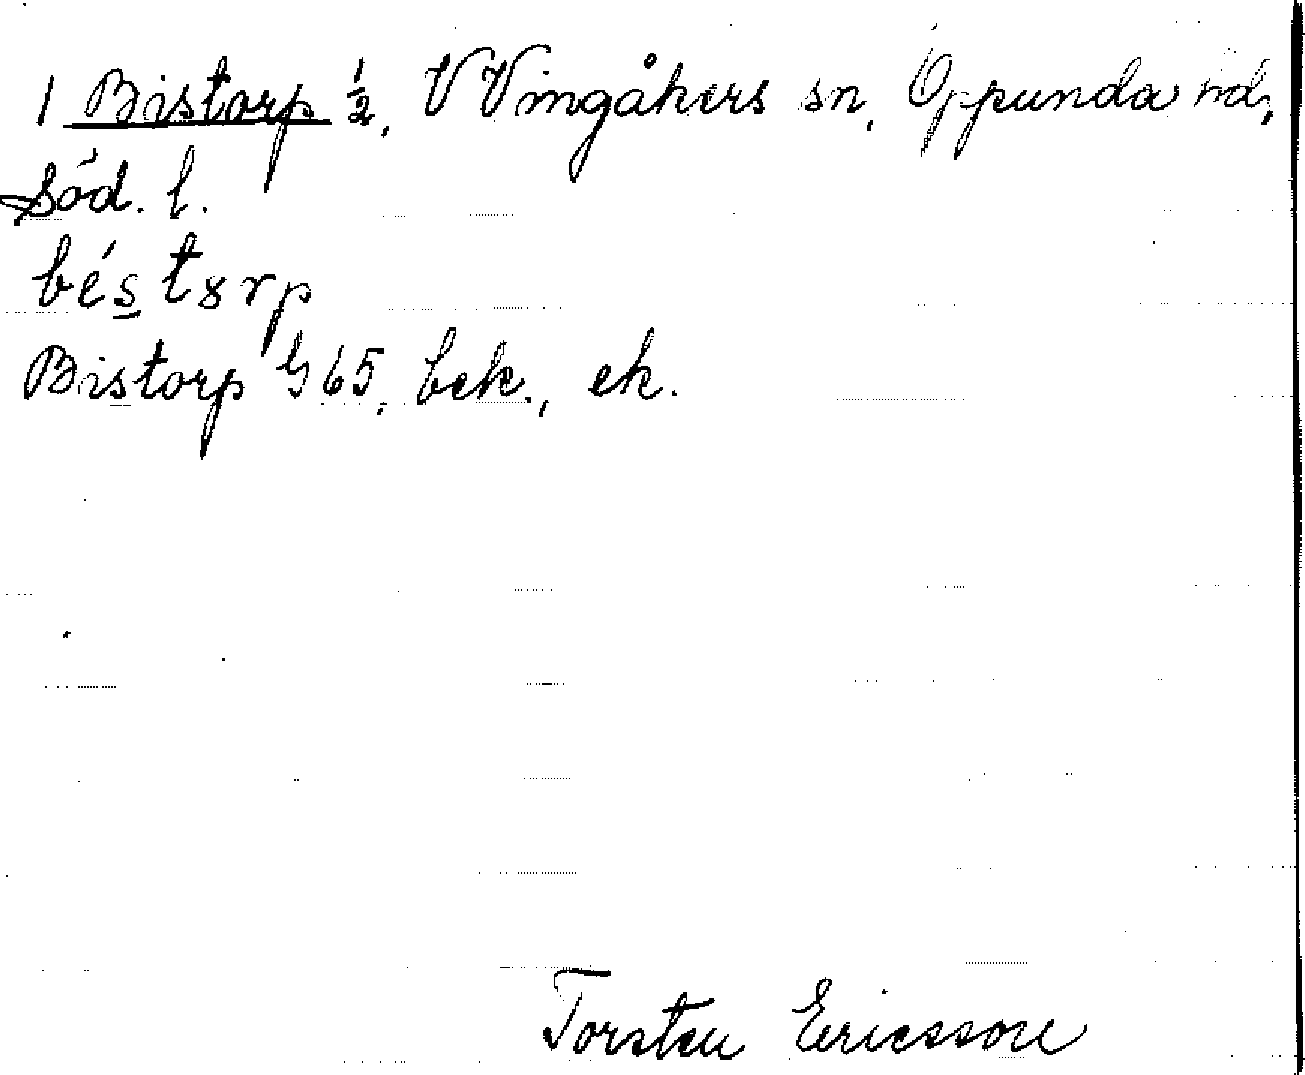 1 Bistorp ½, V Vingåkers sn, Oppunda hd,
Söd. l.
béstɤrp
Bistorp G 65, bek., ek.
Torsten Ericsson